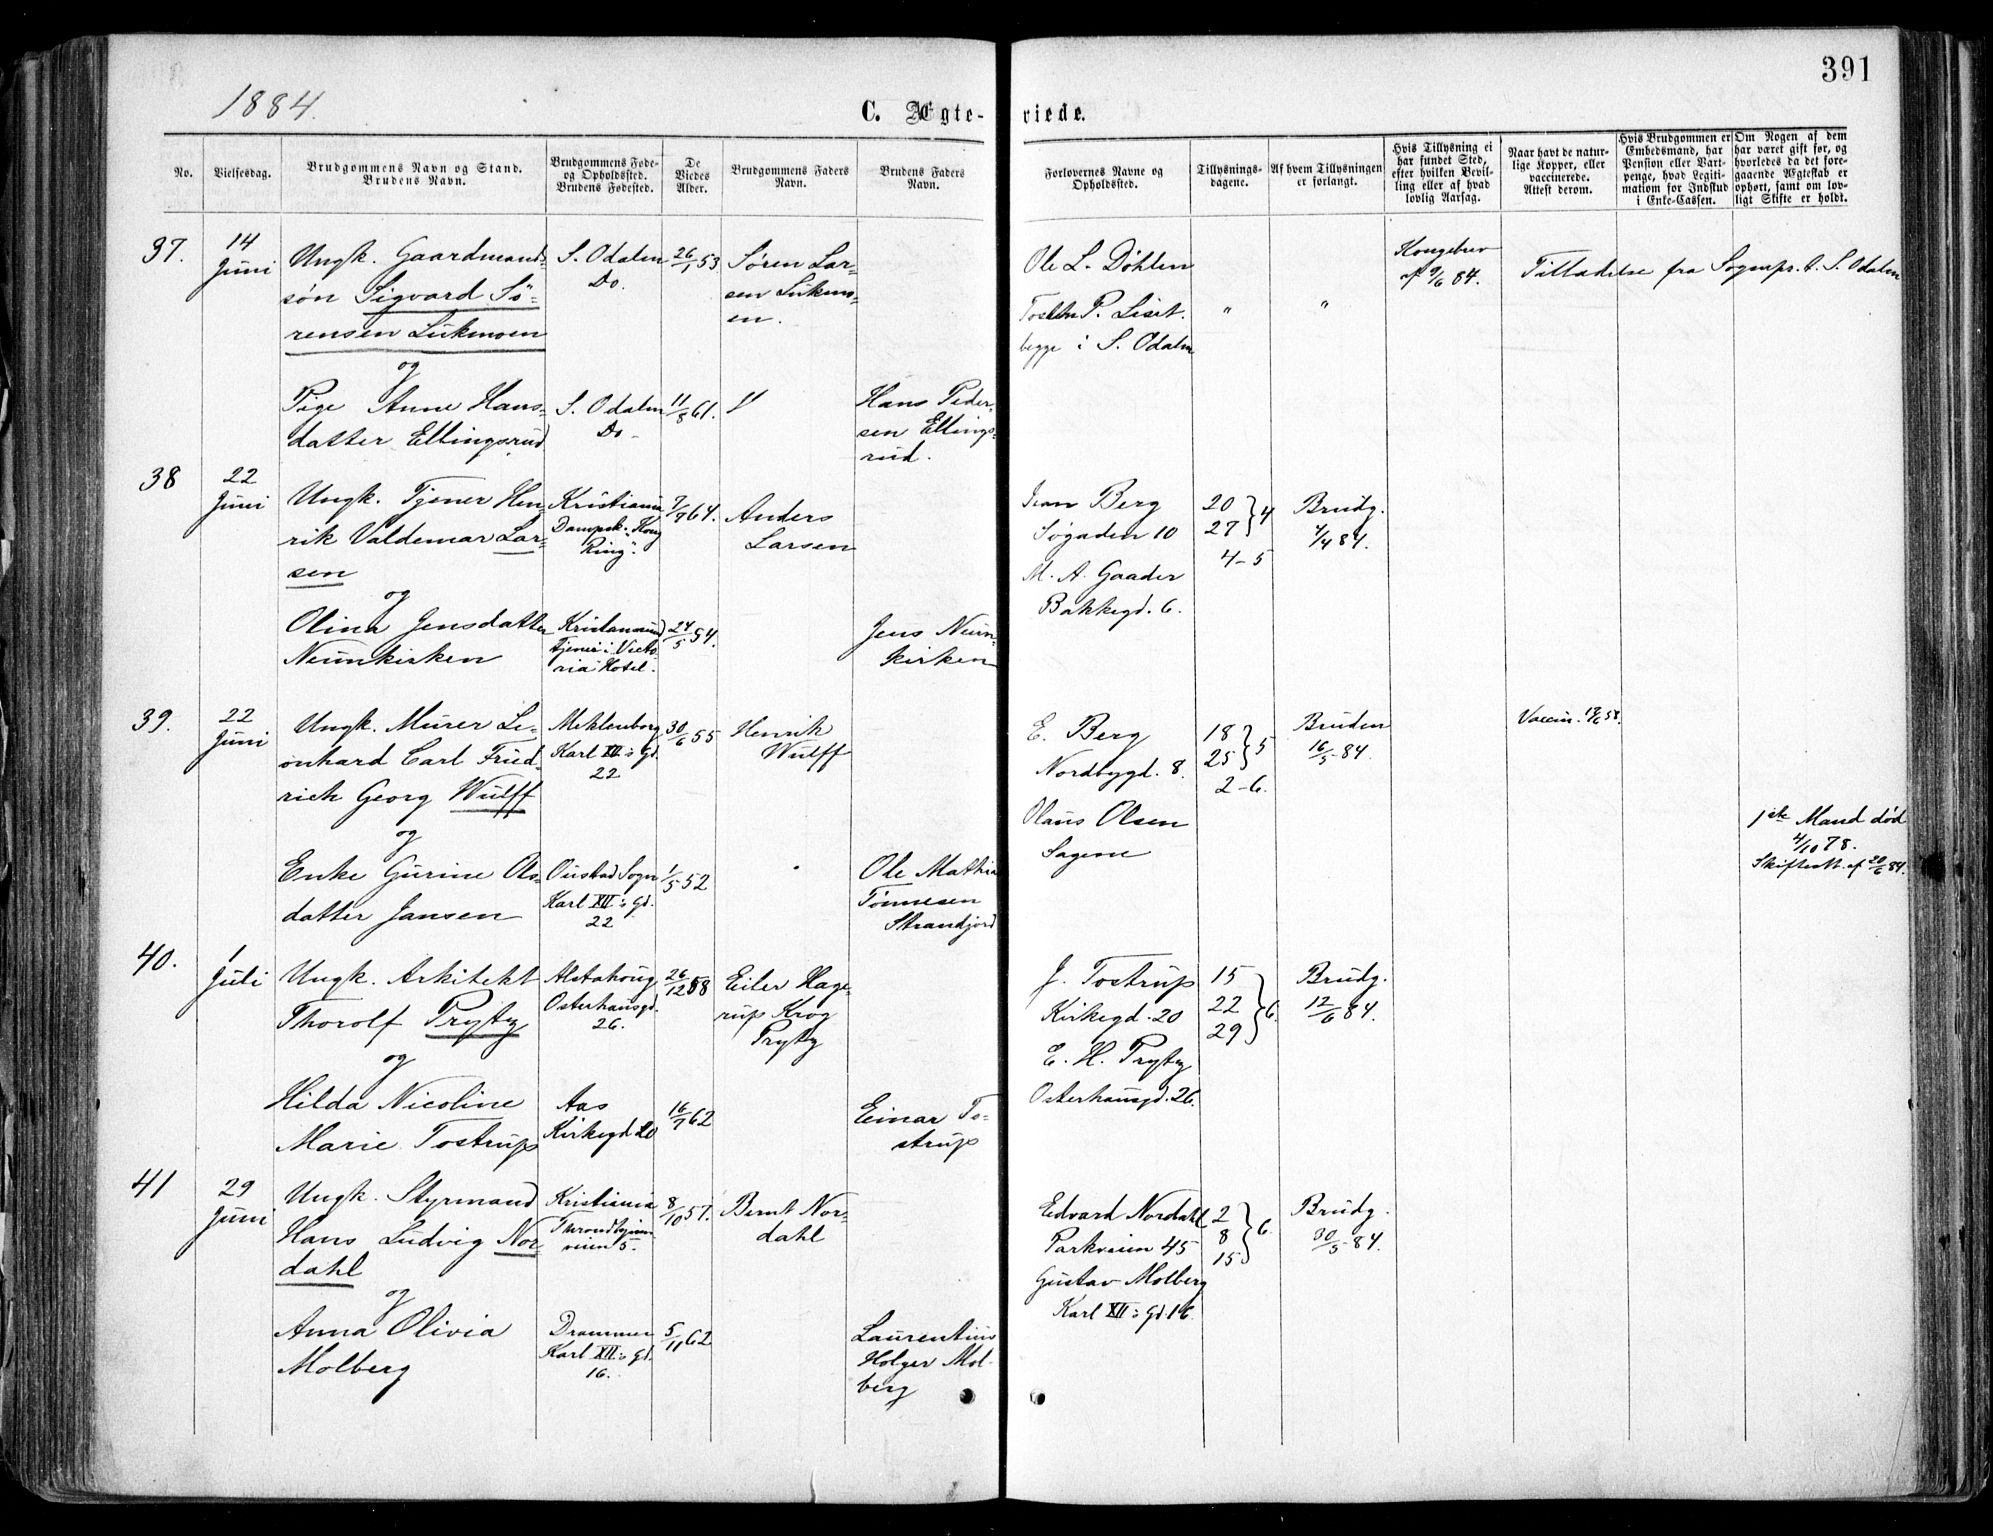 391
1884.
C. Ægte-
viede.
No.
Vielsesdag.
Brudgommens Navn og Stand.
Brudens Navn.
Brudgommens Føde-
og Opholdssted.
Brudens Fødested.
De
Viedes
Alder.
Brudgommens Faders
Navn.
Brudens Faders
Navn.
Forlovernes Navne og
Opholdssted.
Tillysnings-
dagene.
Af hvem Tillysningen
er forlangt.
Hvis Tillysning ei
har fundet Sted,
efter hvilken Bevil-
ling eller af hvad
lovlig Aarsag.
Naar havt de natur-
lige Kopper, eller
vaccinerede.
Attest derom.
Hvis Brudgommen er
Embedsmand, har
Pension eller Vart-
penge, hvad Legiti-
mation for Indskud
i Enke-Cassen.
Om Nogen af dem
har været gift før, og
hvorledes da det fore-
gaaende Ægteskab er
ophørt, samt om lov-
ligt Skifte er holdt.
37.
14
Juni
Ungk. Gaardmands-
søn Sigvard Sö-
rensen Lukmoen
og
Pige Anne Hans-
datter Ellingsrud
S. Odalen
Do.
S. Odalen
Do.
26/1 53
11/8 61.
Søren Lar-
sen Lukmo-
en.
"
Hans Peder-
sen Ellings-
rud.
Ole L. Døhlen
P. Liset.
begge i S. Odalen
"
"
Kongebrev
af 9/6 84.
Tilladelse fra Sognepr. t. S. Odalen
38
22
Juni
Ungk. Tjener Hen-
rik Valdemar Lar-
sen
og
Olina Jensdatter
Neunkirken
Kristiania
Dampsk. "Kong
Ring".
Kristiansund
Tjener i Victo-
ria Hotel.
7/7 64.
24/5 54.
Anders
Larsen
Jens Neun-
kirken
Berg
Søgaden 10
M. A. Gaader
Bakkegd. 6.
20
27 } 4
4-5
Brudg.
4/4 84.
39.
22
Juni
Ungk. Murer Le-
onhard Carl Fried-
rich Georg Wulff
og
Enke Gurine Ols-
datter Jansen
Meklenborg
Karl XII's Gd.
22
Oustad Sogn
Karl XII's Gd.
22
30/6 55
1/5 52
Henrik
Wulff
Ole Mathia
Tønnesen
Strandjord
E. Berg
Nordbygd. 8.
Olaus Olsen
Sagene
18
25 } 5
2-6.
Bruden
16/5 84.
Vaccin. 17/6 58.
1ste Mand død
4/10 78.
Skifteatt. af 20/6 84.
40.
1
Juli
Ungk. Arkitekt
Thorolf Prytz
og
Hilda Nicoline
Marie Tostrup
Alstahoug
Osterhausgd.
26.
Aas
Kirkegd 20
26/12 58
16/7 62
Eiler Hage-
rup Krog
Prytz
Einar To-
strup
J. Tostrup
Kirkegd. 20
E. H. Prytz
Osterhausgd. 26.
15
22 } 6.
29
Brudg.
12/6 84.
41
29
Juni
Ungk. Styrmand
Hans Ludvig Nor-
dahl
og
Anna Olivia
Molberg
Kristiania
Throndhjem-
veien 5.
Drammen
Karl XII's Gd.
16.
8/10 57.
5/11 62
Bernt Nor-
dahl
Laurentius
Holger Mol-
berg
Edvard Nordahl
Parkveien 45
Gustav Molberg
Karl XII's Gd. 16
2
8 } 6.
15
Brudg.
30/5 84.